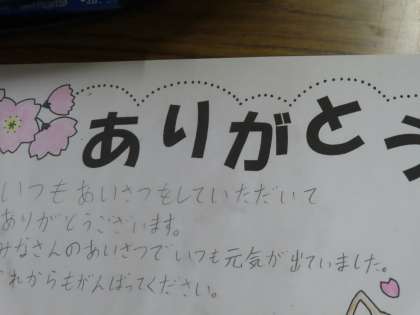 ありがとう
いつもあいさつをしていただいて
ありがとうございます。
みなさんのあいさつでいつも元気が出ていました。
これからもがんばってください。